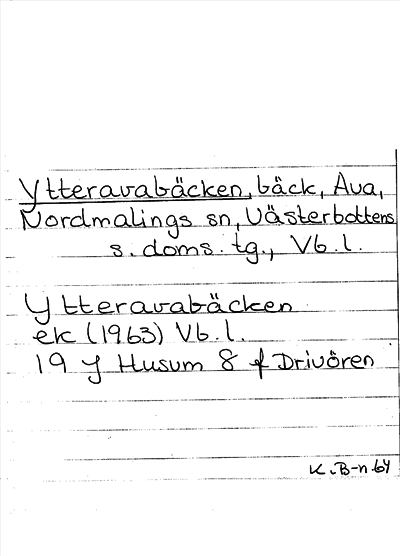 Ytteravabäcken, bäck, Ava,
Nordmalings sn, Västerbottens
s. doms. tg., Vb. l.
Ytteravabäcken
ek (1963) Vb. l.
19 J Husum 8 f Drivören
K. B-n 64